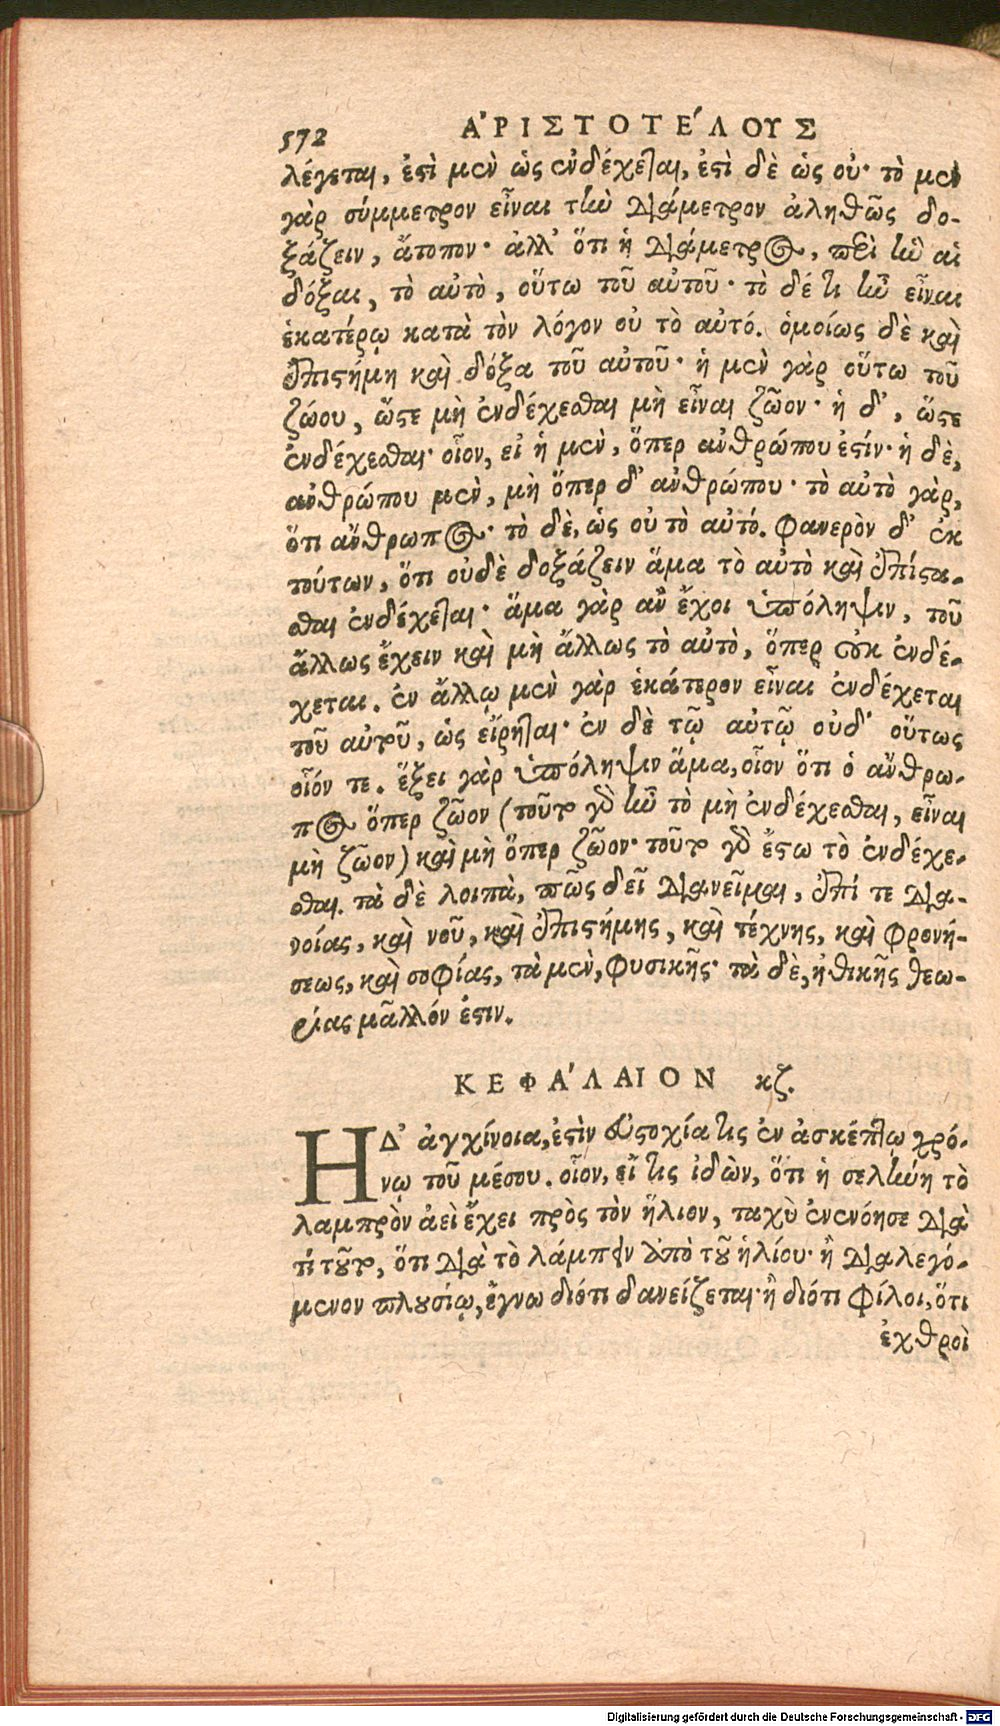 572 ἈΡΙΣΤΟΤΈΛΟΥΣ
λέγεται, ἐστὶ μὲν ὡς ἐνδέχεται, ἐστὶ δὲ ὡς οὐ· τὸ μὲν
γὰρ σύμμετρον εἶναι τὴν διάμετρον ἀληθῶς δο-
ξάζειν, ἄτοπον· ἀλλ' ὅτι ἡ διάμετρος, περὶ ἣν αἱ
δόξαι, τὸ αὐτὸ, οὕτω τοῦ αὐτοῦ· τὸ δέ τι ἦν εἶναι
ἑκατέρῳ κατὰ τὸν λόγον οὐ τὸ αὐτό. ὁμοίως δὲ καὶ
ἐπιστήμη καὶ δόξα τοῦ αὐτοῦ· ἡ μὲν γὰρ οὕτω τοῦ
ζώου, ὥστε μὴ ἐνδέχεσθαι μὴ εἶναι ζῶον· ἡ δ', ὥστε
ἐνδέχεσθαι· οἷον, εἰ ἡ μὲν, ὅπερ ἀνθρώπου ἐστίν· ἡ δὲ,
ἀνθρώπου μὲν, μὴ ὅπερ δ' ἀνθρώπου· τὸ αὐτὸ γὰρ,
ὅτι ἄνθρωπος· τὸ δὲ, ὡς οὐ τὸ αὐτό. Φανερὸν δ' ἐκ
τούτων, ὅτι οὐδὲ δοξάζειν ἅμα τὸ αὐτὸ καὶ ἐπίστα-
σθαι ἐνδέχεται· ἅμα γὰρ ἂν ἔχοι ὑπόληψιν, τοῦ
ἄλλως ἔχειν καὶ μὴ ἄλλως τὸ αὐτὸ, ὅπερ οὐκ ἐνδέ-
χεται. ἐν ἄλλῳ μὲν γὰρ ἑκάτερον εἶναι ἐνδέχεται
τοῦ αὐτοῦ, ὡς εἴρηται· ἐν δὲ τῷ αὐτῷ οὐδ' οὕτως
οἷόν τε. ἕξει γὰρ ὑπόληψιν ἅμα, οἷον ὅτι ὁ ἄνθρω-
πος ὅπερ ζῶον (τοῦτο γὰρ ἦν τὸ μὴ ἐνδέχεσθαι, εἶναι
μὴ ζῶον) καὶ μὴ ὅπερ ζῶον· τοῦτο γὰρ ἔστω τὸ ἐνδέχε-
σθαι. τὰ δὲ λοιπὰ, πῶς δεῖ διανεῖμαι, ἐπί τε δια-
νοίας, καὶ νοῦ, καὶ ἐπιστήμης, καὶ τέχνης, καὶ φρονή-
σεως, καὶ σοφίας, τὰ μὲν, φυσικῆς· τὰ δὲ, ἠθικῆς θεω-
ρίας μᾶλλόν ἐστιν.
ΚΕΦΆΛΑΙΟΝ κζ.
Η Δ' ἀγχίνοια, ἐστὶν εὐστοχία τις ἐν ἀσκέπτῳ χρό-
νῳ τοῦ μέσου. οἷον, εἴ τις ἰδὼν, ὅτι ἡ σελήνη τὸ
λαμπρὸν ἀεὶ ἔχει πρὸς τὸν ἥλιον, ταχὺ ἐνενόησε διὰ
τί τοῦτο, ὅτι διὰ τὸ λάμπειν ἀπὸ τοῦ ἡλίου· ἢ διαλεγό-
μενον πλουσίῳ, ἔγνω διότι δανείζεται· ἢ διότι φίλοι, ὅτι
ἐχθροὶ
Digitalisierung gefördert durch die Deutsche Forschungsgemeinschaft - DFG